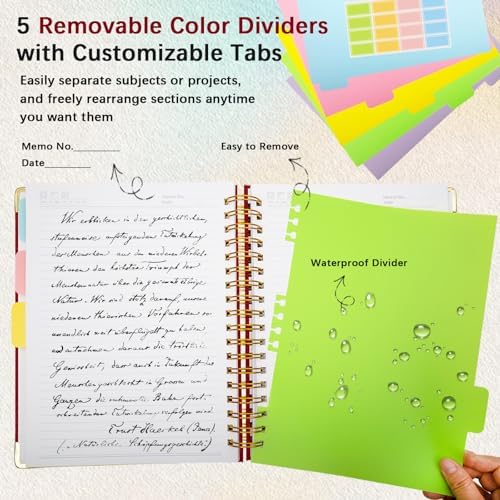 5 Removable Color Dividers
with Customizable Tabs
Easily separate subjects or projects,
and freely rearrange sections anytime
you want them
Memo No.________
Date________
Easy to Remove
Waterproof Divider
Wir erblicken in der geschichtlichen,
stufenweise aufsteigenden Entwickelung
der Menschen aus den niederen Wirbel-
thieren den höchsten Triumph der
Menschennatur über die gesammte übrige
Natur. Wir sind stolz darauf, unsere
niederen thierischen Vorfahren so
unendlich weit überflügelt zu haben
und entnehmen daraus die tröstliche
Gewissheit, dass auch in Zukunft das
Menschengeschlecht im Grossen und
Ganzen die ruhmvolle Bahn fort-
schreitender Entwickelung verfolgen wird
Ernst Haeckel (Jena).
(„Natürliche Schöpfungsgeschichte)